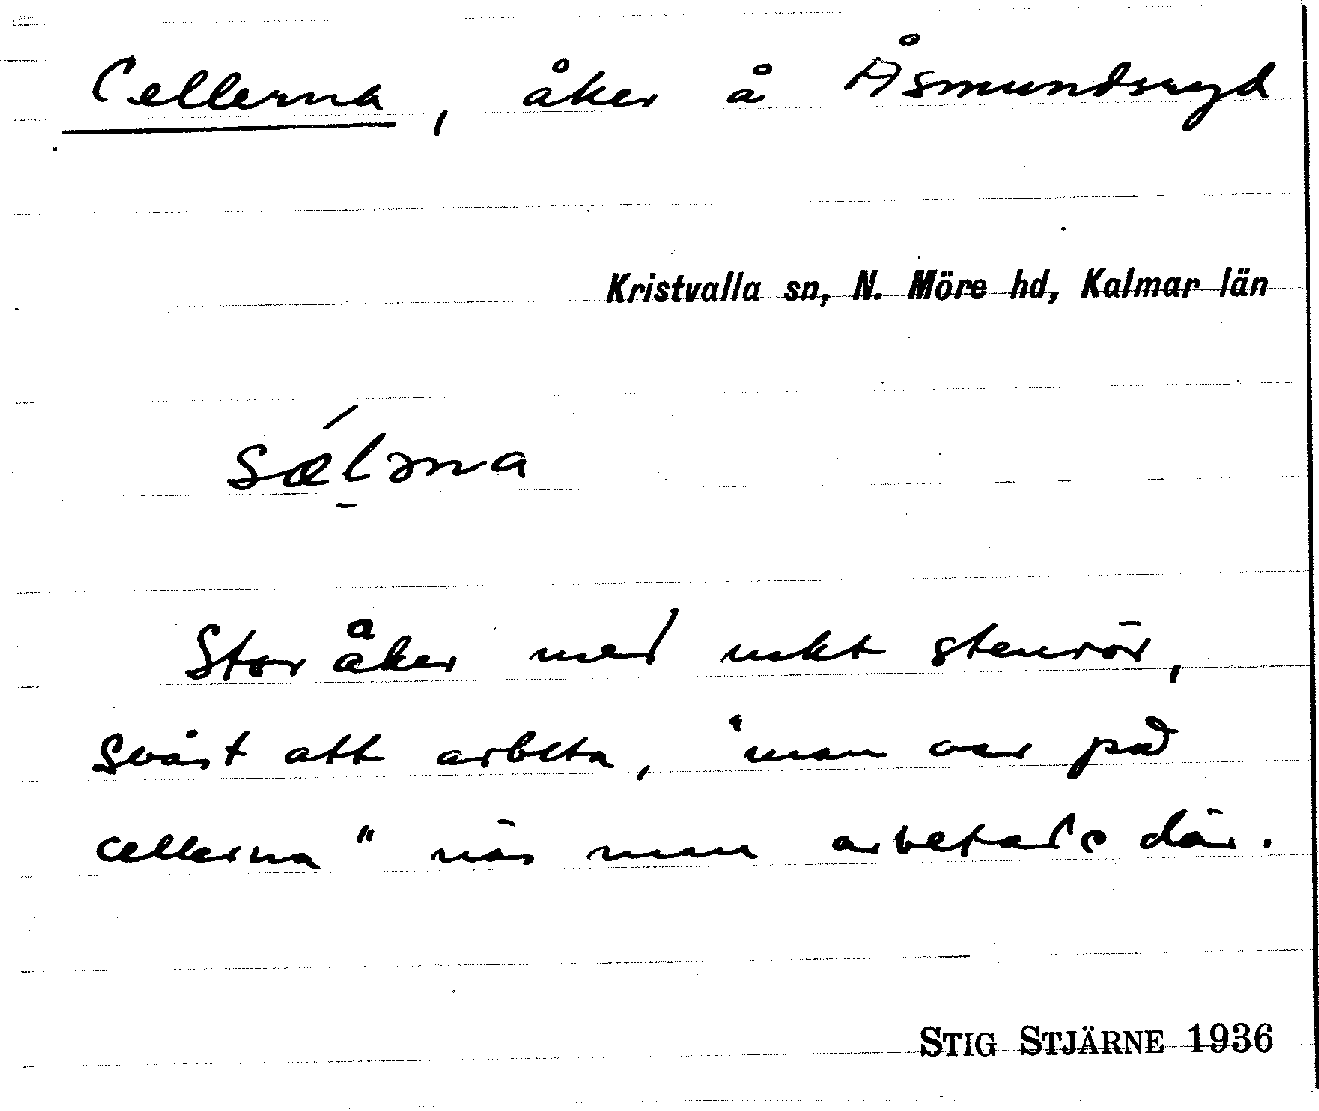 Cellerna, åker å Åsmundsryd
Kristvalla sn, N. Möre hd, Kalmar län
sǽl̠əna
Stor åker med mkt stenrör,
svårt att arbeta, "man var på
cellerna" när man arbetade där.
STIG STJÄRNE 1936